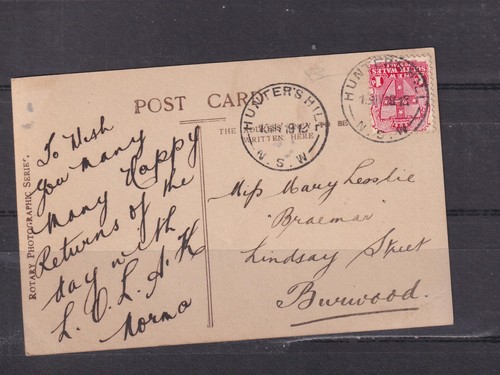 POST CARD
THE ADDRESS ONLY TO BE
WRITTEN HERE
HUNTER'S HILL
N.S.W
HUNTER'S HILL
N.S.W
SOUTH WALES
ROTARY PHOTOGRAPHIC SERIES
To Wish
you many
many happy
Returns of the
day with
L. O. L. A. K
Norma
Miss Mary Lesslie
"Braemar"
Lindsay Street
Burwood.